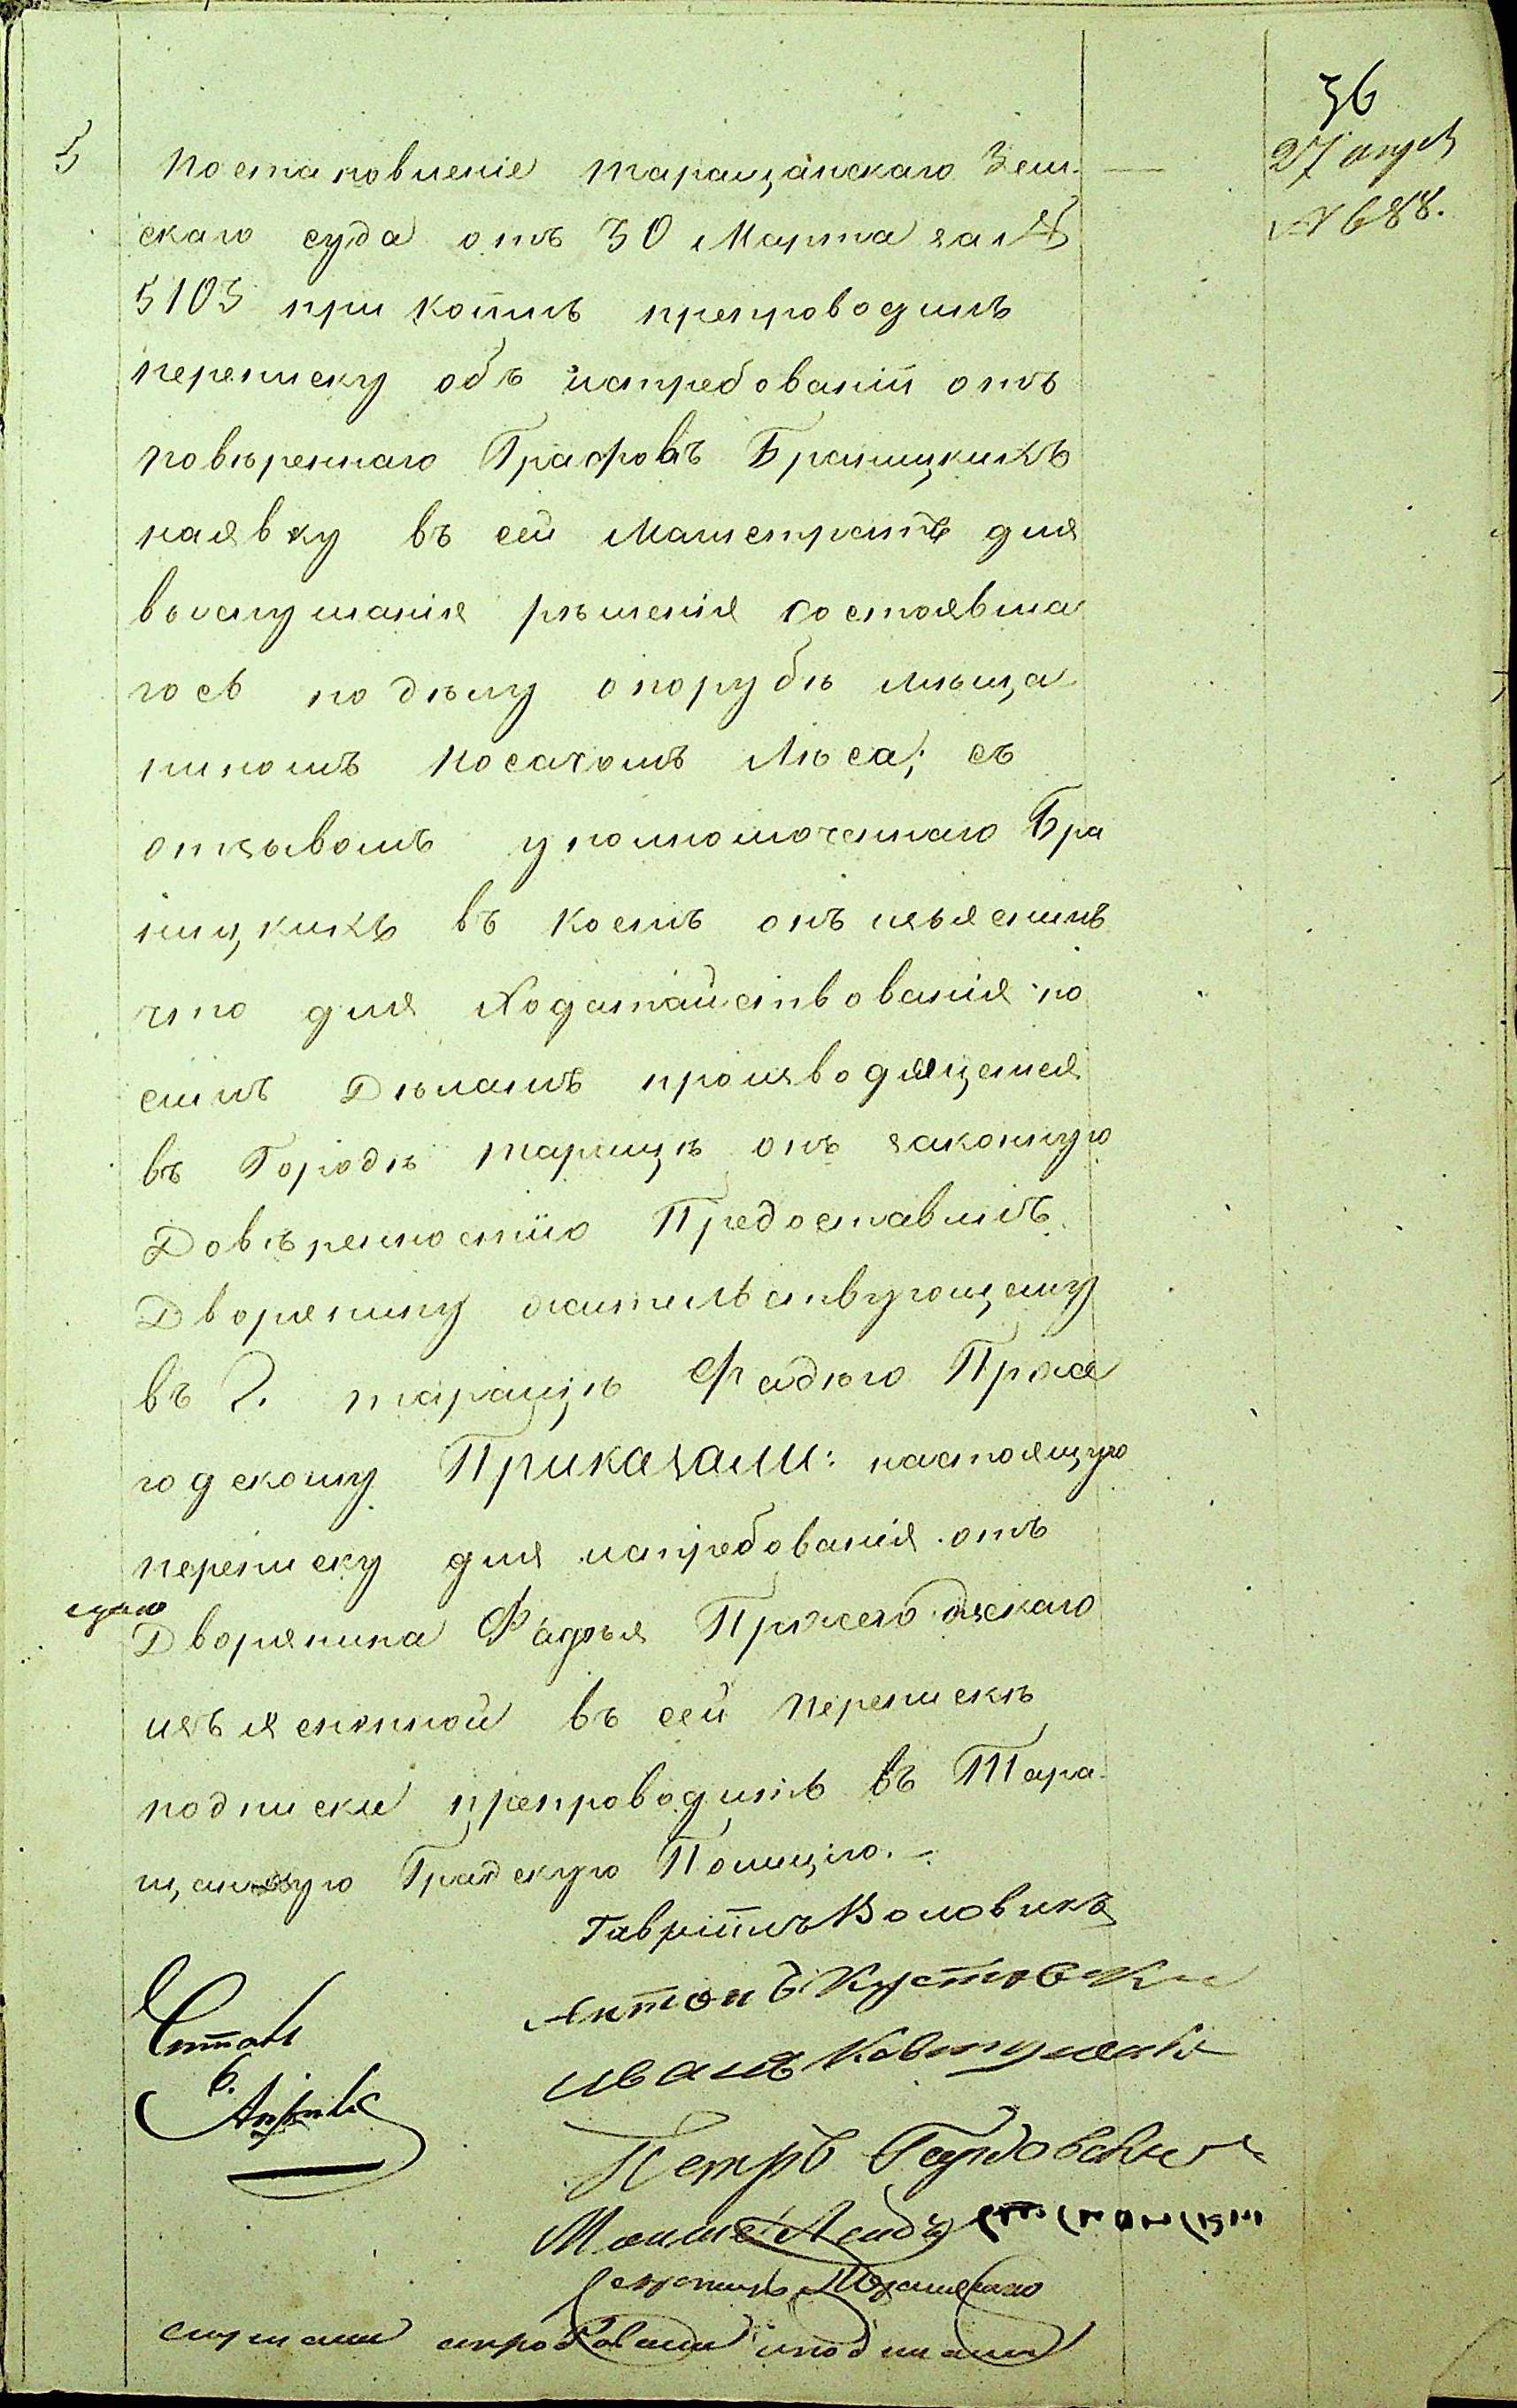 36
5
27 апрел
№ 688.
Постановленіе таращанскаго Зем-
скаго суда отъ 30 Марта за №
5103 при коимъ препроводилъ
переписку объ истребованіи отъ
повѣреннаго Графовъ Браницкихъ
наявку въ сей Магистратъ для
выслушанія рѣшенія состоявша
гось по дѣлу опорубкѣ мѣща
ниномъ Носачомъ Лѣса; съ
отзывомъ уполномоченнаго Бра
ницкихъ въ коемъ онъ изъяснилъ
что для Ходатайствованія по
симъ Дѣламъ производящемся
въ Городѣ таращѣ онъ законную
Довѣренностію Предоставилъ
Дворянину жительствующему
въ г. таращѣ Фадѣю Прже
годскому Приказали: настоящую
переписку для истребованія отъ
Дворянина Фадѣя Пржегодскаго
изъясненной въ сей перепискѣ
подписки препроводить въ Тара-
щанскую Градскую Полицію.-
Гавріилъ Воловикъ
Антонъ Кустовски
иванъ Ковтуненко
Читалъ
Петръ Гордовски
Мошке
слушали и подписали